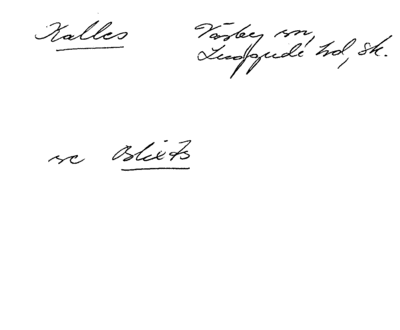 Kalles Väsby sn,
Luggude hd, Sk.
se Blixts